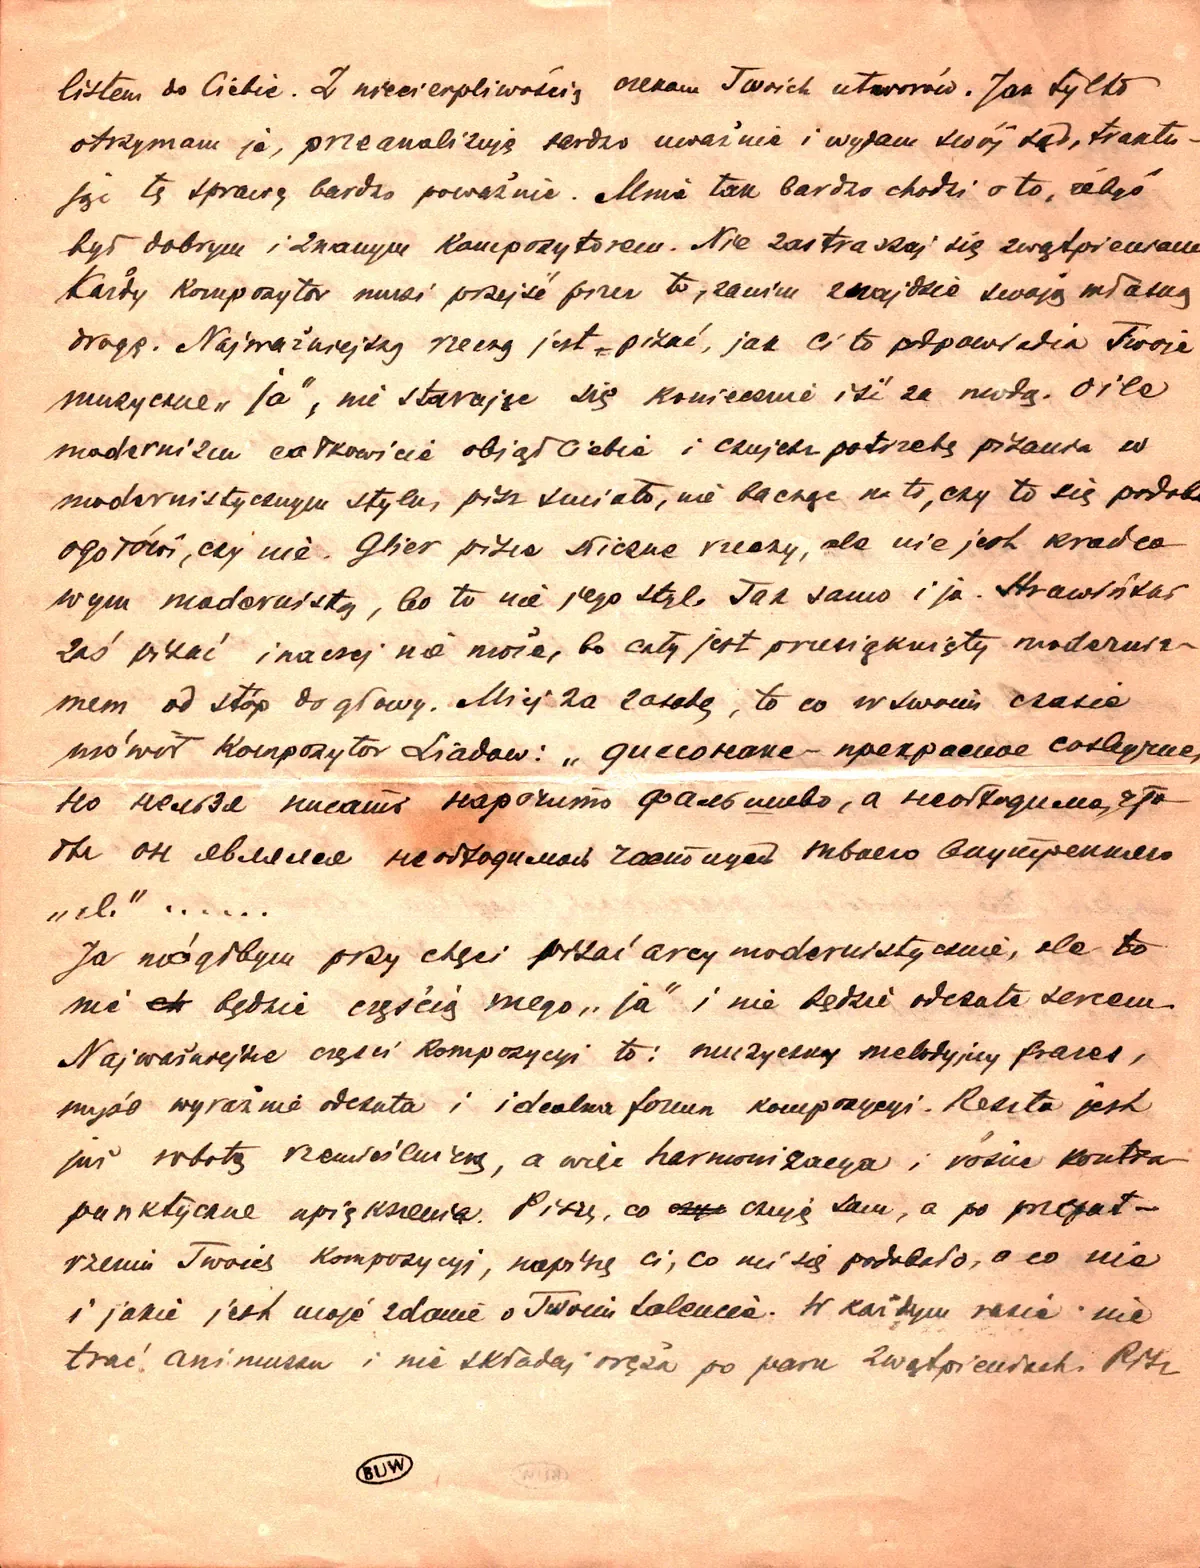 listem do Ciebie. Z niecierpliwością czekam Twoich utworów. Jak tylko
otrzymam je, przeanalizuję bardzo uważnie i wydam swój sąd, traktu-
jąc tę sprawę bardzo poważnie. Mnie tak bardzo chodzi o to, żebyś
był dobrym i znanym kompozytorem. Nie zastraszaj się zwątpieniami
Każdy kompozytor musi przejść przez to, zanim znajdzie swoją własną
drogę. Najważniejszą rzeczą jest - pisać, jak Ci to podpowiada Twoje
muzyczne „ja", nie starając się koniecznie iść za modą. O ile
modernizm całkowicie objął Ciebie i czujesz potrzebę pisania w
modernistycznym stylu, pisz śmiało, nie bacząc na to, czy to się podoba
ogółowi, czy nie. Glier pisze śliczne rzeczy, ale nie jest krańco
wym modernistą, bo to nie jego styl. Tak samo i ja. Strawiński
zaś pisać inaczej nie może, bo cały jest przesiąknięty moderniz-
mem od stóp do głowy. Miej za zasadę, to co w swoim czasie
mówił kompozytor Liadow: „диссонанс - прекрасное созвучие,
но нельзя писать нарочито фальшиво, а необходимо, что
бы он являлся необходимой частицей твоего внутреннего
„я." ......
Ja mógłbym przy chęci pisać arcymodernistycznie, ale to
nie będzie częścią mego „ja" i nie będzie odczute sercem.
Najważniejsze części kompozycji to: muzyczny melodyjny frazes,
myśl wyraźnie odczuta i idealna forma kompozycyi. Reszta jest
już robotą rzemieślniczą, a więc harmonizacya i różne kontra
punktyczne upiększenia. Piszę, co czuję sam, a po przejrat-
rzeniu Twoich kompozycyj, napiszę ci, co mi się podobało, a co nie
i jakie jest moje zdanie o Twoim talencie. W każdym razie nie
trać animuszu i nie składaj oręża po paru zwątpieniach. Pisz
BUW